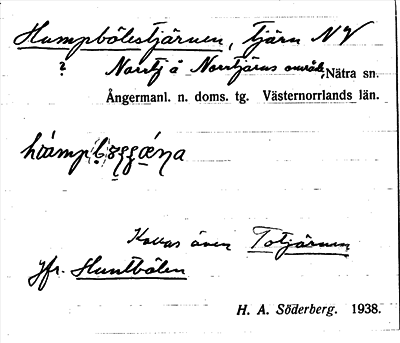 Humpbölestjärnen, Tjärn NV
? Norrtjå Norrtjärns område, Nätra sn.
Ångermanl. n. doms. tg. Västernorrlands län.
Kallas även Totjärnen
Jfr. Huntbölen
H. A. Söderberg. 1938.